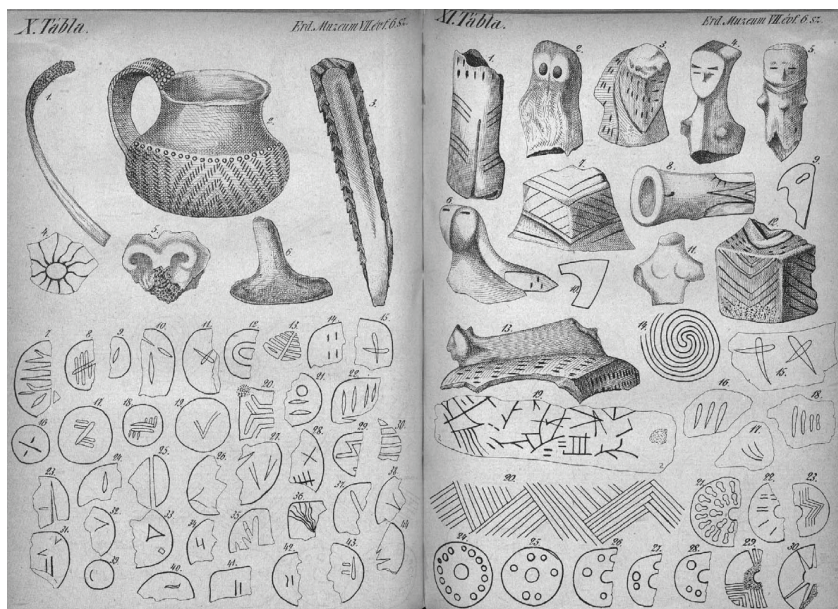 X. Tábla.
Erd. Muzeum VII. évf. 6. sz.
1.
2.
3.
4.
5.
6.
7.
8.
9.
10.
11.
12.
13.
14.
15.
16.
17.
18.
19.
20.
21.
22.
23.
24.
25.
26.
27.
28.
29.
30.
31.
32.
33.
34.
35.
36.
39.
40.
41.
42.
43.
44.
XI. Tábla.
Erd. Muzeum VII. évf. 6. sz.
1.
2.
3.
4.
5.
6.
7.
8.
9.
10.
11.
12.
13.
14.
15.
16.
17.
18.
19.
20.
21.
22.
23.
24.
25.
26.
27.
28.
29.
30.